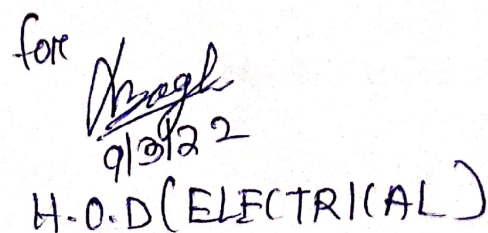 for
9/3/22
H.O.D (ELECTRICAL)